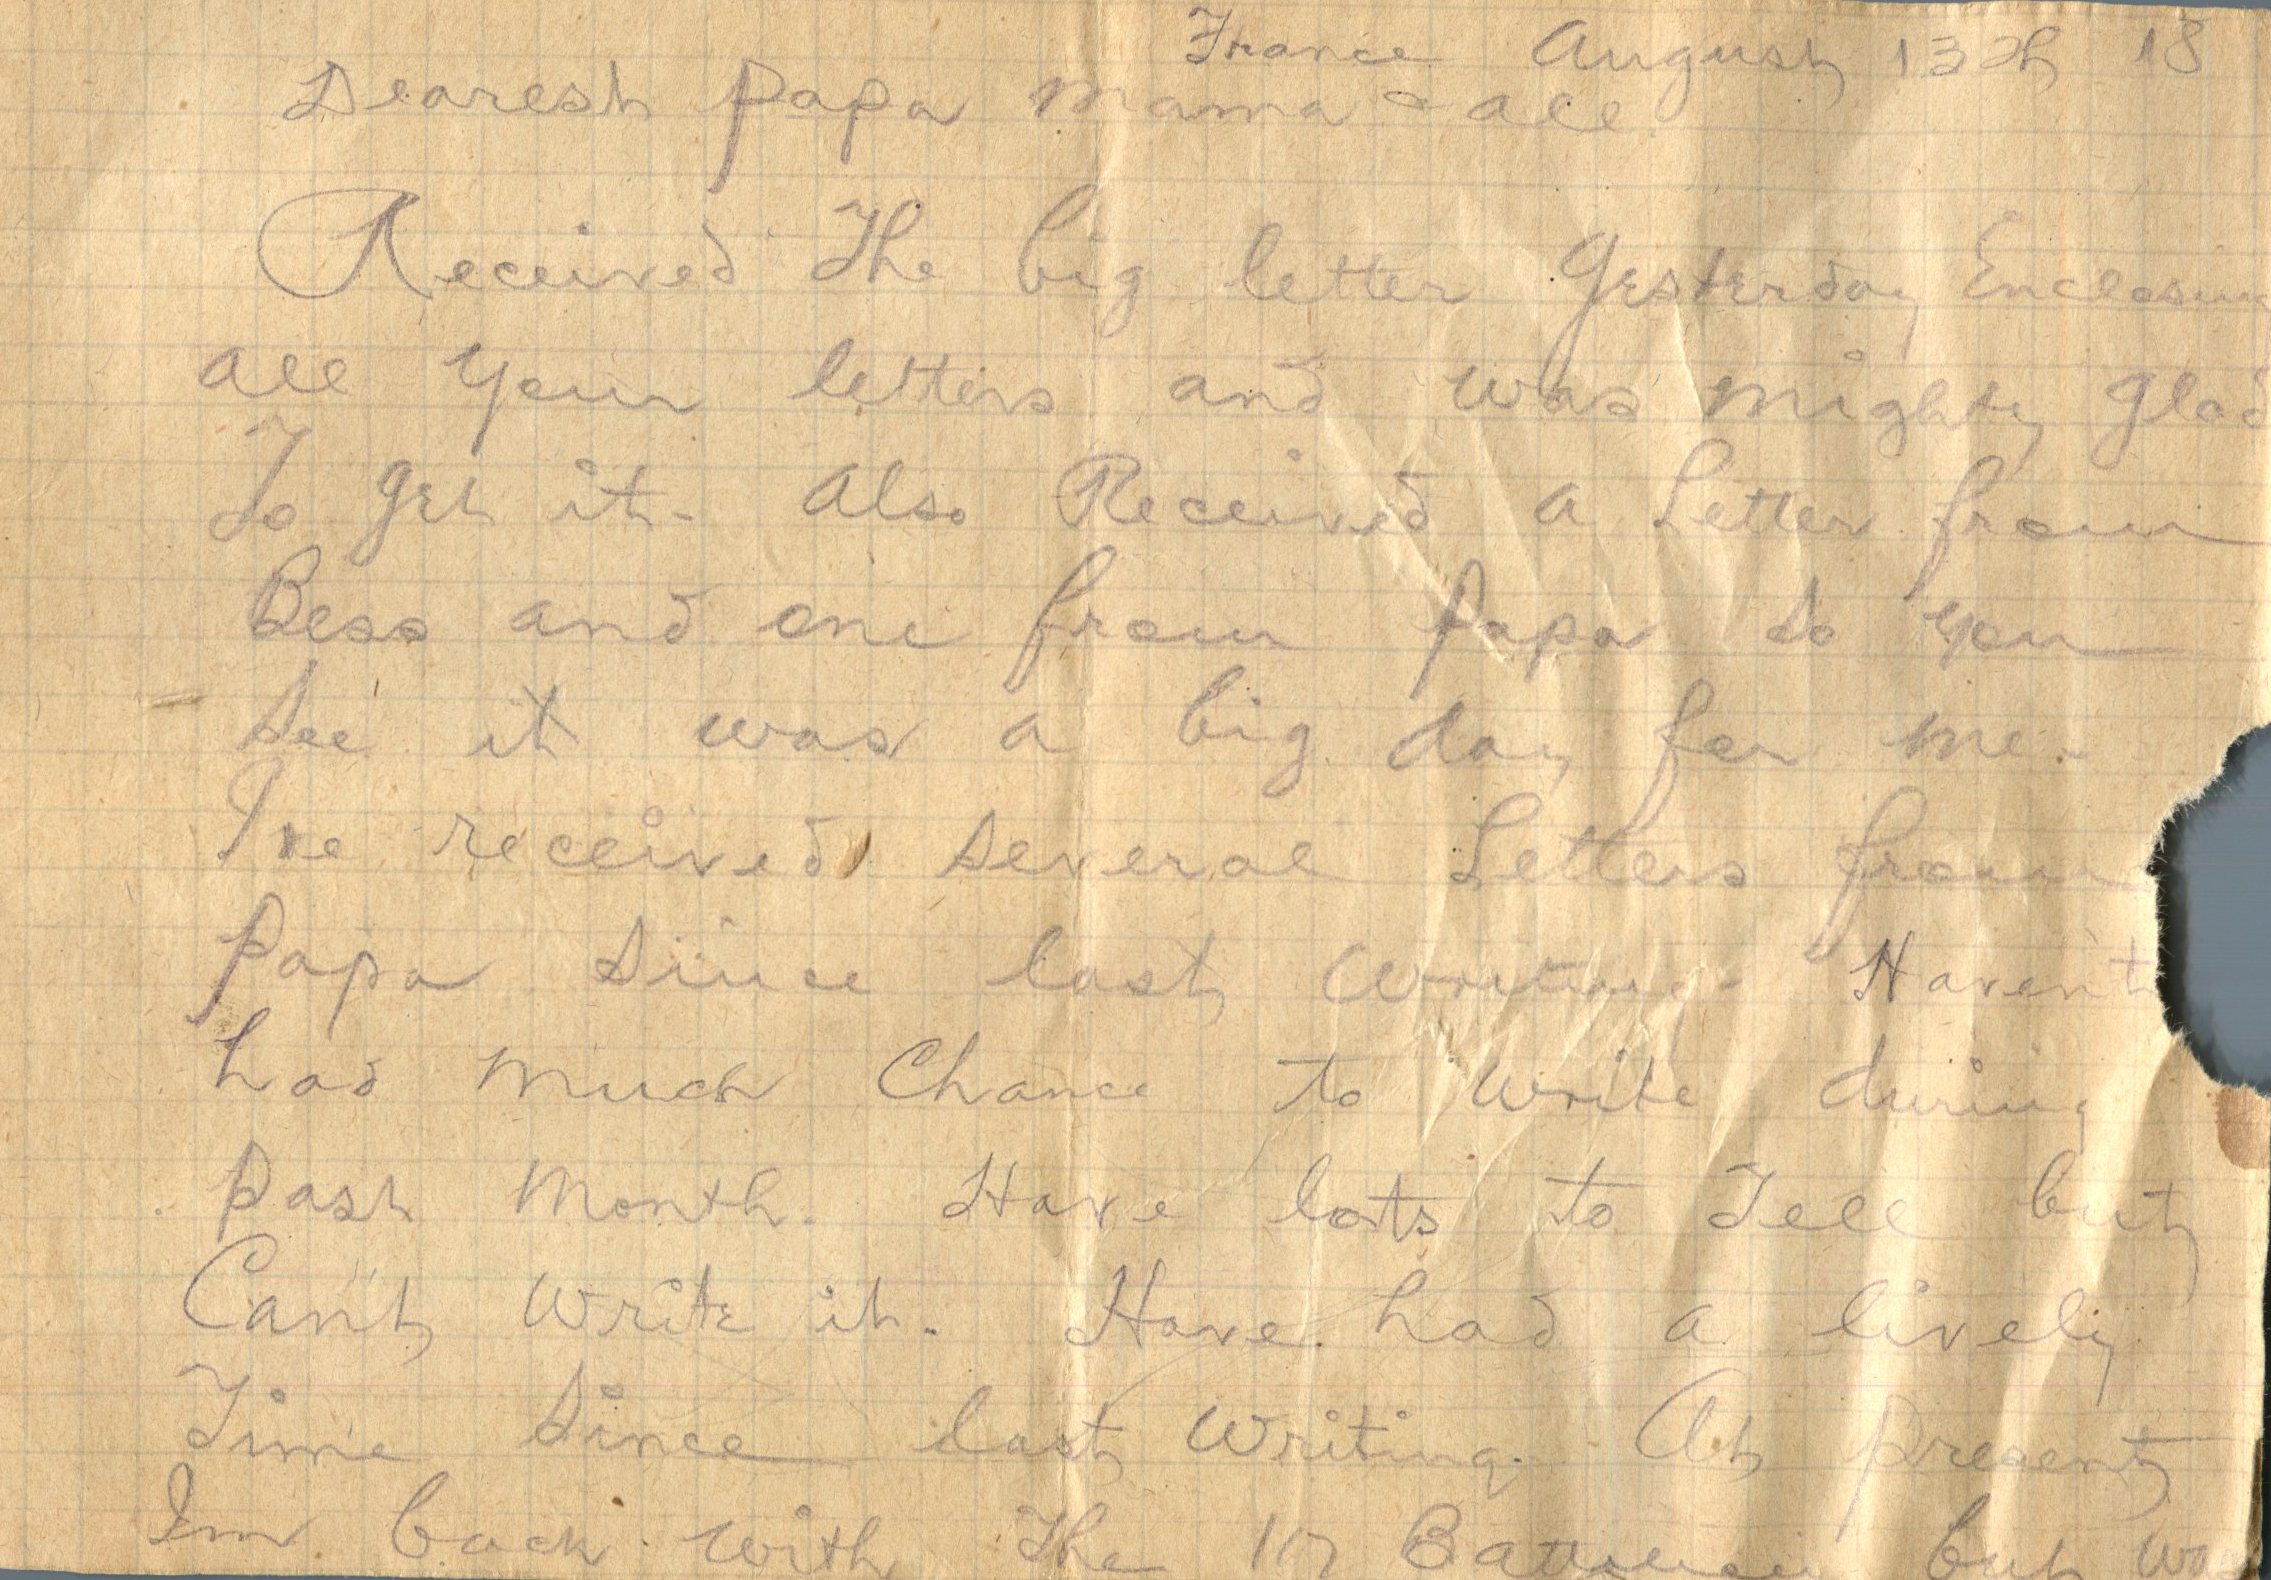 France August 13th 18
Dearest Papa Mama & all.
Received The big letter Yesterday Enclosing
all your letters and was mighty glad
To get it. Also Received a Letter from
Bess and one from Papa So you
See it was a big day for me.
Ive received Several Letters from
Papa Since last Writing. Havent
had much Chance to write during
past Month. Have lots to Tell but
Can't write it. Have had a lively
Time Since last Writing. At present
Im back with The Battalion but was